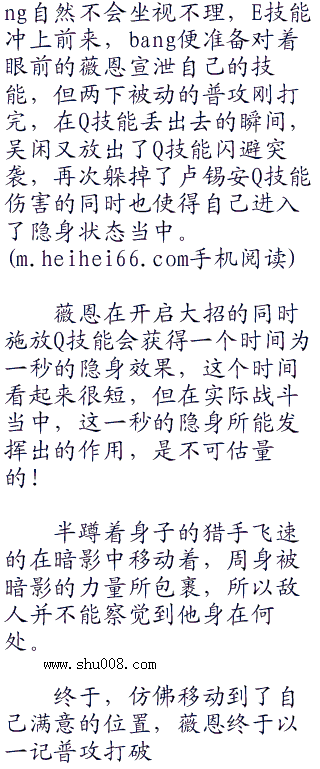 ng自然不会坐视不理，E技能
冲上前来，bang便准备对着
眼前的薇恩宣泄自己的技
能，但两下被动的普攻刚打
完，在Q技能丢出去的瞬间，
吴闲又放出了Q技能闪避突
袭，再次躲掉了卢锡安Q技能
伤害的同时也使得自己进入
了隐身状态当中。
(m.heihei66.com手机阅读)
薇恩在开启大招的同时
施放Q技能会获得一个时间为
一秒的隐身效果，这个时间
看起来很短，但在实际战斗
当中，这一秒的隐身所能发
挥出的作用，是不可估量
的！
半蹲着身子的猎手飞速
的在暗影中移动着，周身被
暗影的力量所包裹，所以敌
人并不能察觉到他身在何
处。
www.shu008.com
终于，仿佛移动到了自
己满意的位置，薇恩终于以
一记普攻打破